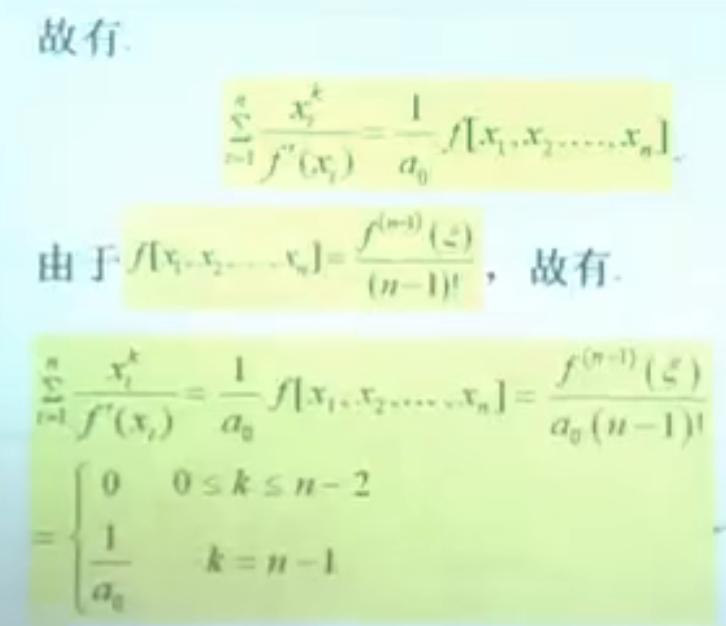 故有
\sum_{i=1}^{n} \frac{x_i^k}{f'(x_i)} = \frac{1}{a_0} f[x_1, x_2, ..., x_n]
由于 f[x_1, x_2, ..., x_n] = \frac{f^{(n-1)}(ξ)}{(n-1)!}，故有
\sum_{i=1}^{n} \frac{x_i^k}{f'(x_i)} = \frac{1}{a_0} f[x_1, x_2, ..., x_n] = \frac{f^{(n-1)}(ξ)}{a_0 (n-1)!}
= \begin{cases} 0 & 0 ≤ k ≤ n-2 \\ \frac{1}{a_0} & k = n-1 \end{cases}